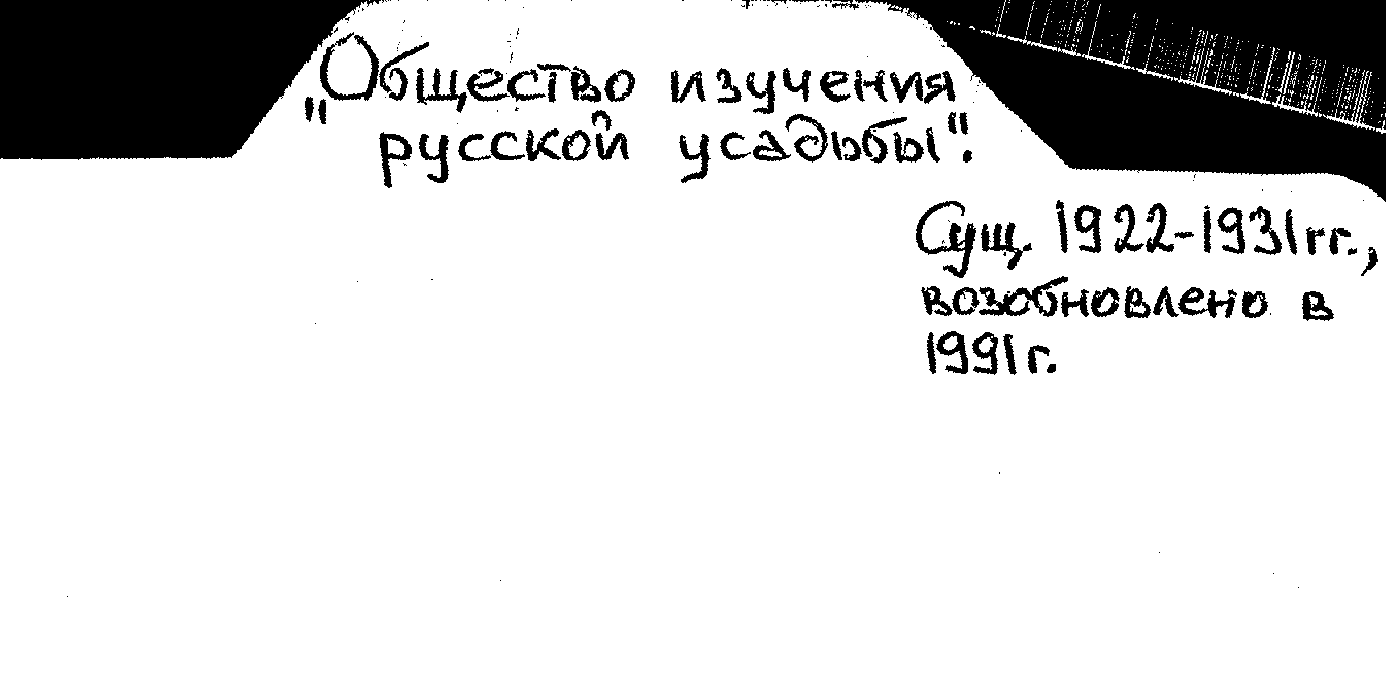 "Общество изучения
русской усадьбы".
Сущ. 1922-1931гг.,
возобновлено в
1991г.